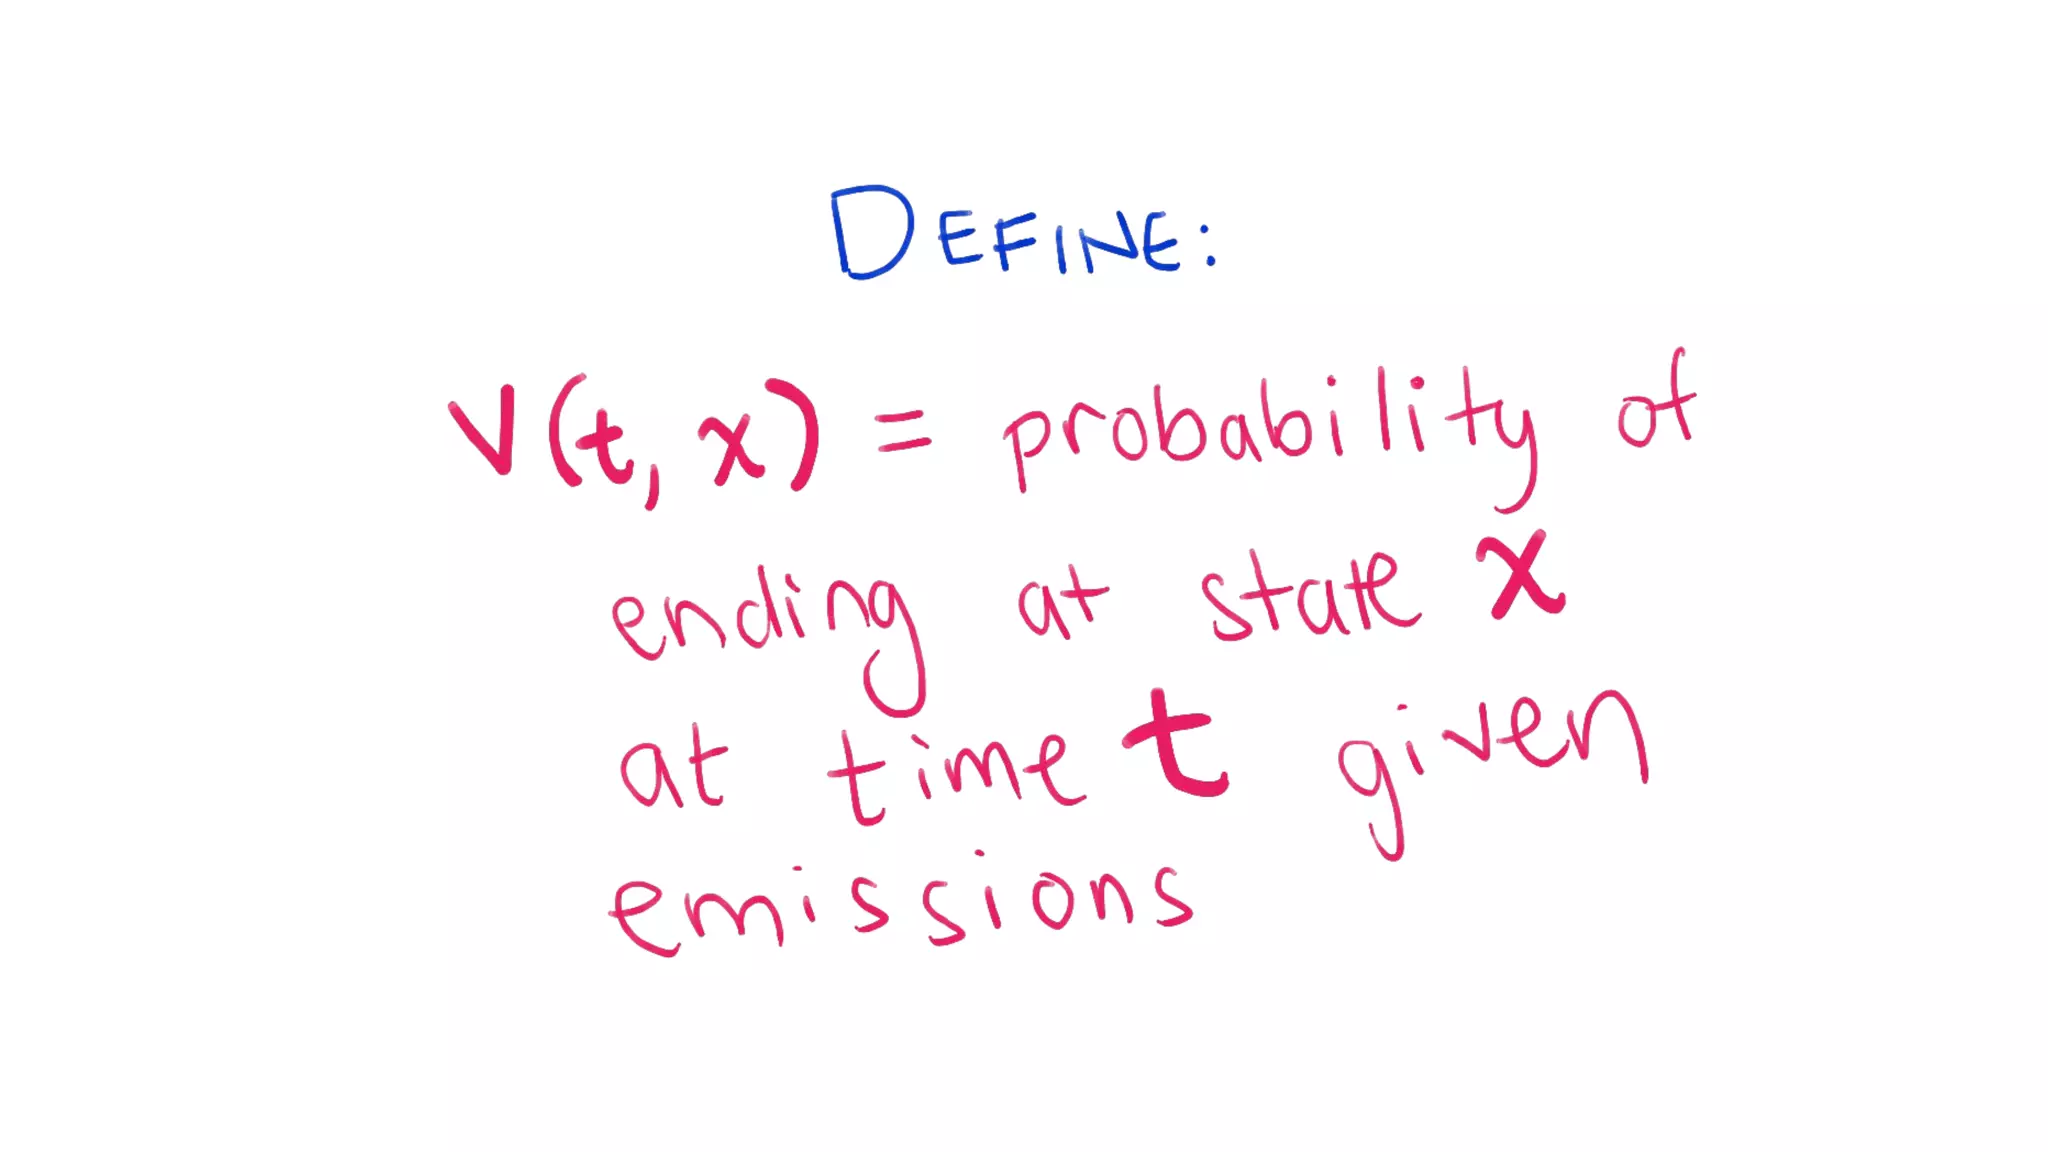 DEFINE:
V(t, x) = probability of
ending at state x
at time t given
emissions